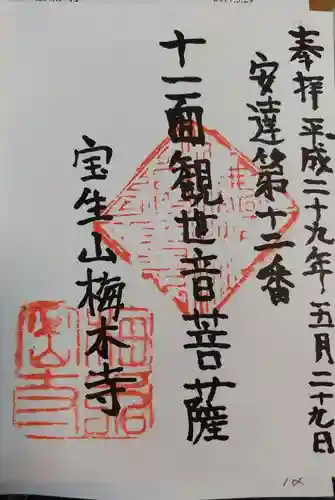 奉拝 平成二十九年五月二十九日
安達第十二番
十一面観世音菩薩
宝生山梅木寺